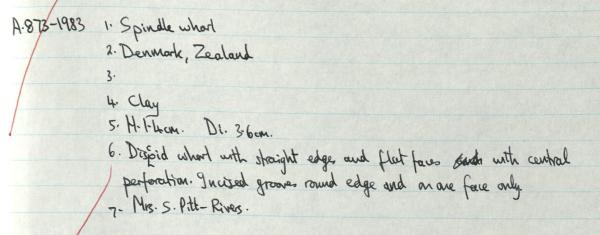 A.873-1983 1. Spindle whorl
2. Denmark, Zealand
3.
4. Clay
5. H. 1.4cm. Di. 3.6cm.
6. Discoid whorl with straight edges and flat faces with central
perforation. Incised grooves round edge and on one face only
7. Mrs. S. Pitt-Rivers.